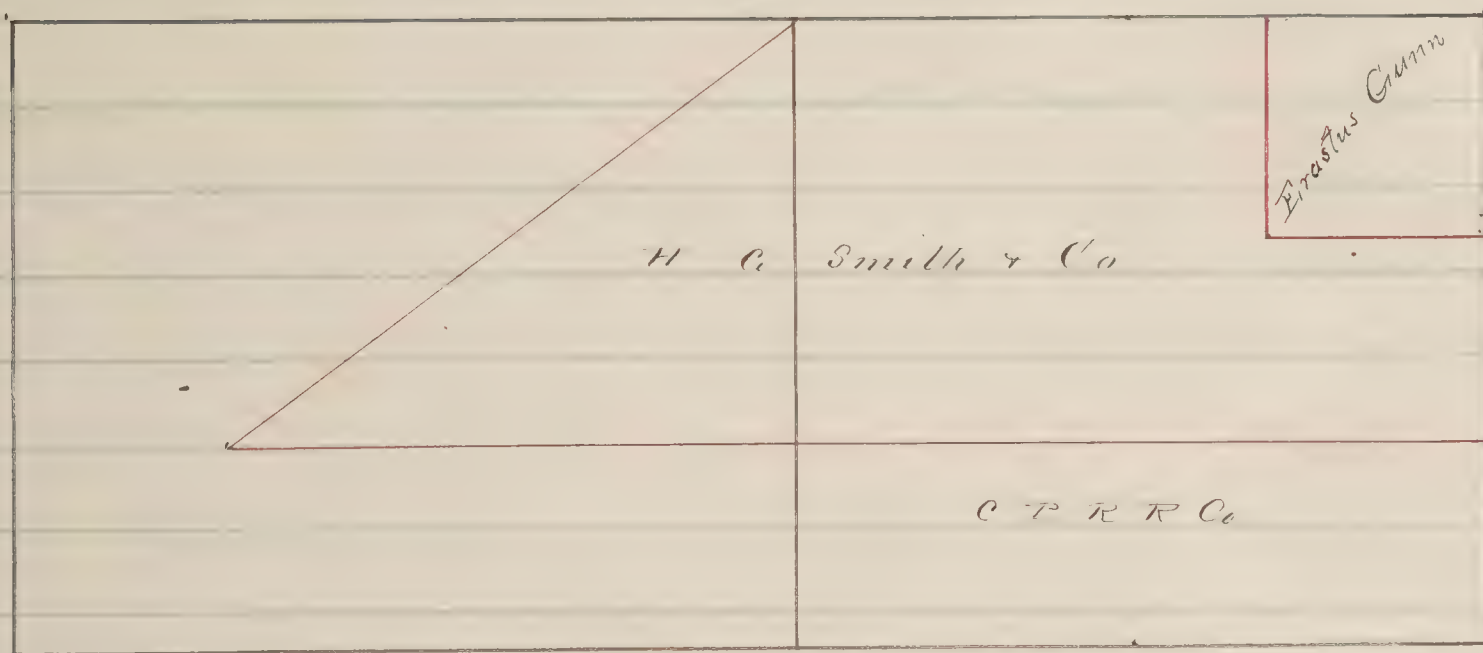 Erastus Gunn
H C Smith & Co
C P R R Co